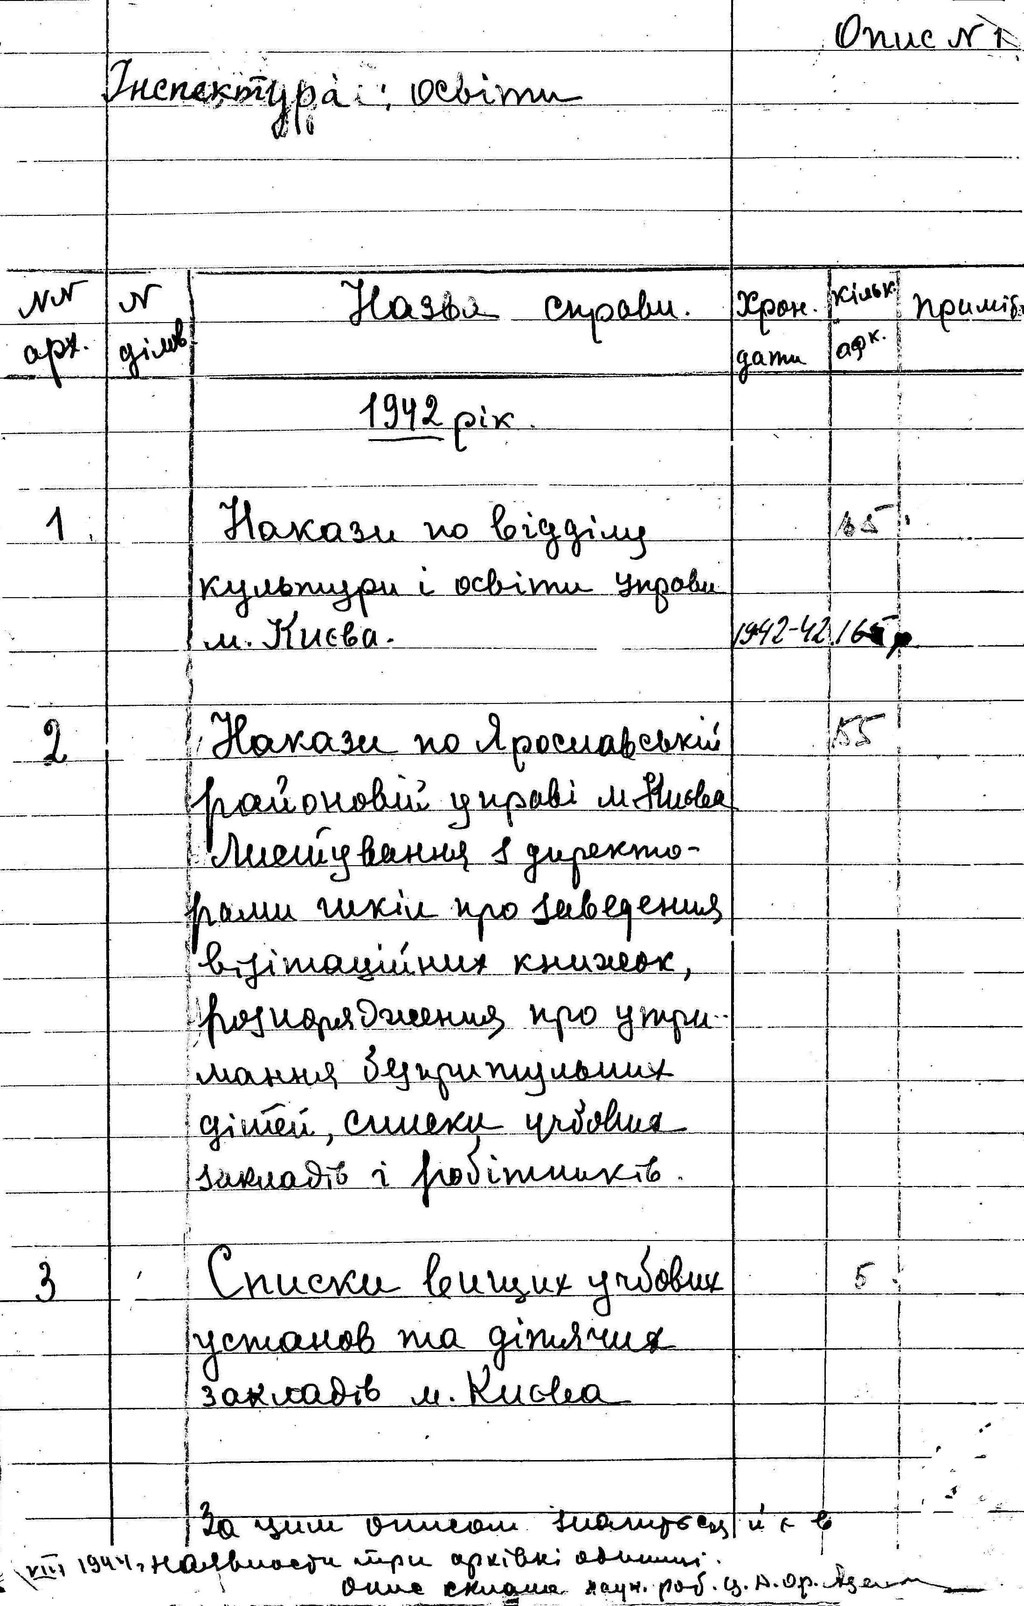 Опис N 1
Інспектура освіти
NN арх.
N ділов.
Назва справи.
Хрон. дати
Кільк. арк.
Приміт.
1942 рік.
1
Накази по відділу
культури і освіти управи
м. Києва.
1942-42
2
Накази по Ярославській
55
районовій управі м. Києва
Листування з директо-
рами шкіл про заведення
візітаційних книжок,
розпорядження про утри-
мання безпритульних
дітей, списки учбових
закладів і робітників.
3
Списки вищих учбових
5
установ та дітячих
закладів м. Києва
За цим описом значиться й є в
VIII 1944, наявности три архівні одиниці.
Опис склала наук. роб. Ц. А.